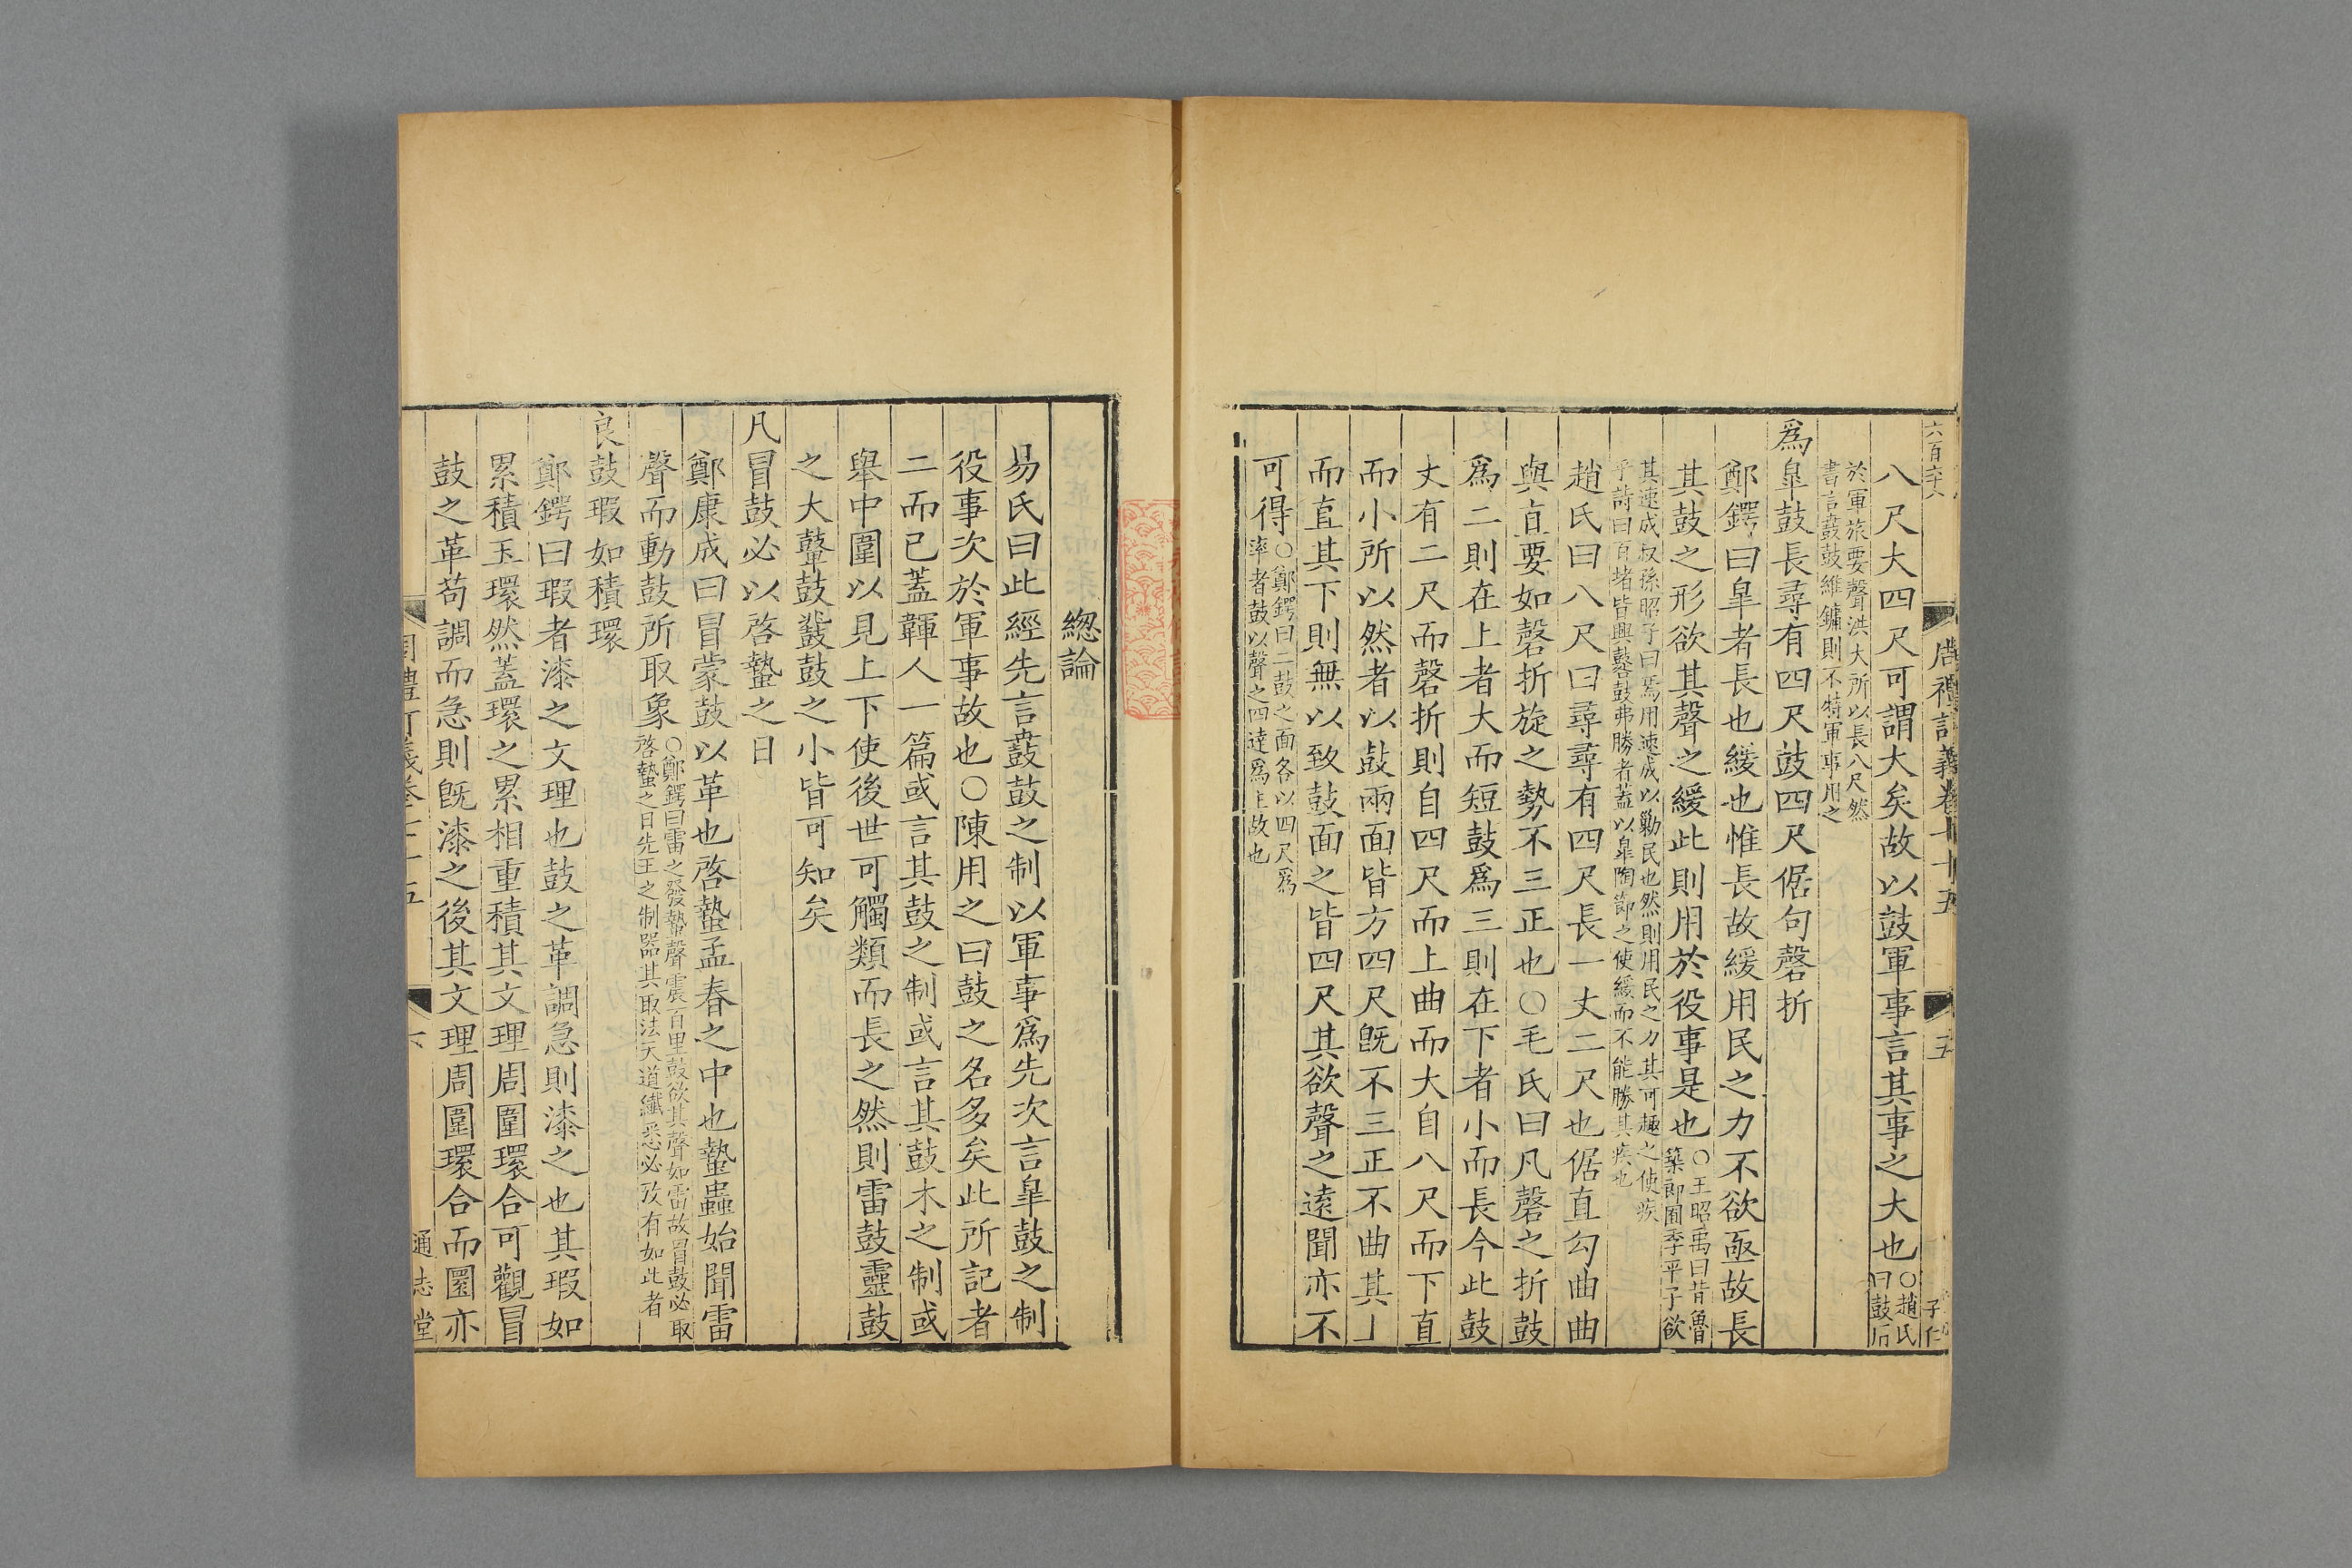 六百六十八
周禮訂義卷七十五
五
八尺大四尺可謂大矣故以鼓軍事言其事之大也〇趙氏曰鼓所
於軍旅要聲洪大所以長八尺然
書言鼖鼓維鏞則不特軍事用之
爲臯鼓長尋有四尺鼓四尺倨句磬折
鄭鍔曰臯者長也緩也惟長故緩用民之力不欲亟故長
其鼓之形欲其聲之緩此則用於役事是也〇王昭禹曰昔魯築郎囿季平子欲
其速成叔孫昭子曰焉用速成以勦民也然則用民之力其可趣之使疾
乎詩曰百堵皆興鼛鼓弗勝者蓋以臯陶節之使緩而不能勝其疾也
趙氏曰八尺曰尋尋有四尺長一丈二尺也倨直勾曲曲
與直要如磬折旋之勢不三正也〇毛氏曰凡磬之折鼓
爲二則在上者大而短鼓爲三則在下者小而長今此鼓
丈有二尺而磬折則自四尺而上曲而大自八尺而下直
而小所以然者以鼓兩面皆方四尺旣不三正不曲其上
而直其下則無以致鼓面之皆四尺其欲聲之遠聞亦不
可得〇鄭鍔曰二鼓之面各以四尺爲率者鼓以聲之四達爲主故也
緫論
易氏曰此經先言鼖鼓之制以軍事爲先次言臯鼓之制
役事次於軍事故也〇陳用之曰鼓之名多矣此所記者
二而已蓋韗人一篇或言其鼓之制或言其鼓木之制或
舉中圍以見上下使後世可觸類而長之然則雷鼓靈鼓
之大鼛鼓鼖鼓之小皆可知矣
凡冒鼓必以啓蟄之日
鄭康成曰冒蒙鼓以革也啓蟄孟春之中也蟄蟲始聞雷
聲而動鼓所取象〇鄭鍔曰雷之發蟄聲震百里鼓欲其聲如雷故冒鼓必取啓蟄之日先王之制器其取法天道纖悉必攷有如此者
良鼓瑕如積環
鄭鍔曰瑕者漆之文理也鼓之革調急則漆之也其瑕如
累積玉環然蓋環之累相重積其文理周圍環合可觀冒
鼓之革苟調而急則旣漆之後其文理周圍環合而圜亦
周禮訂義卷七十五
六
通志堂